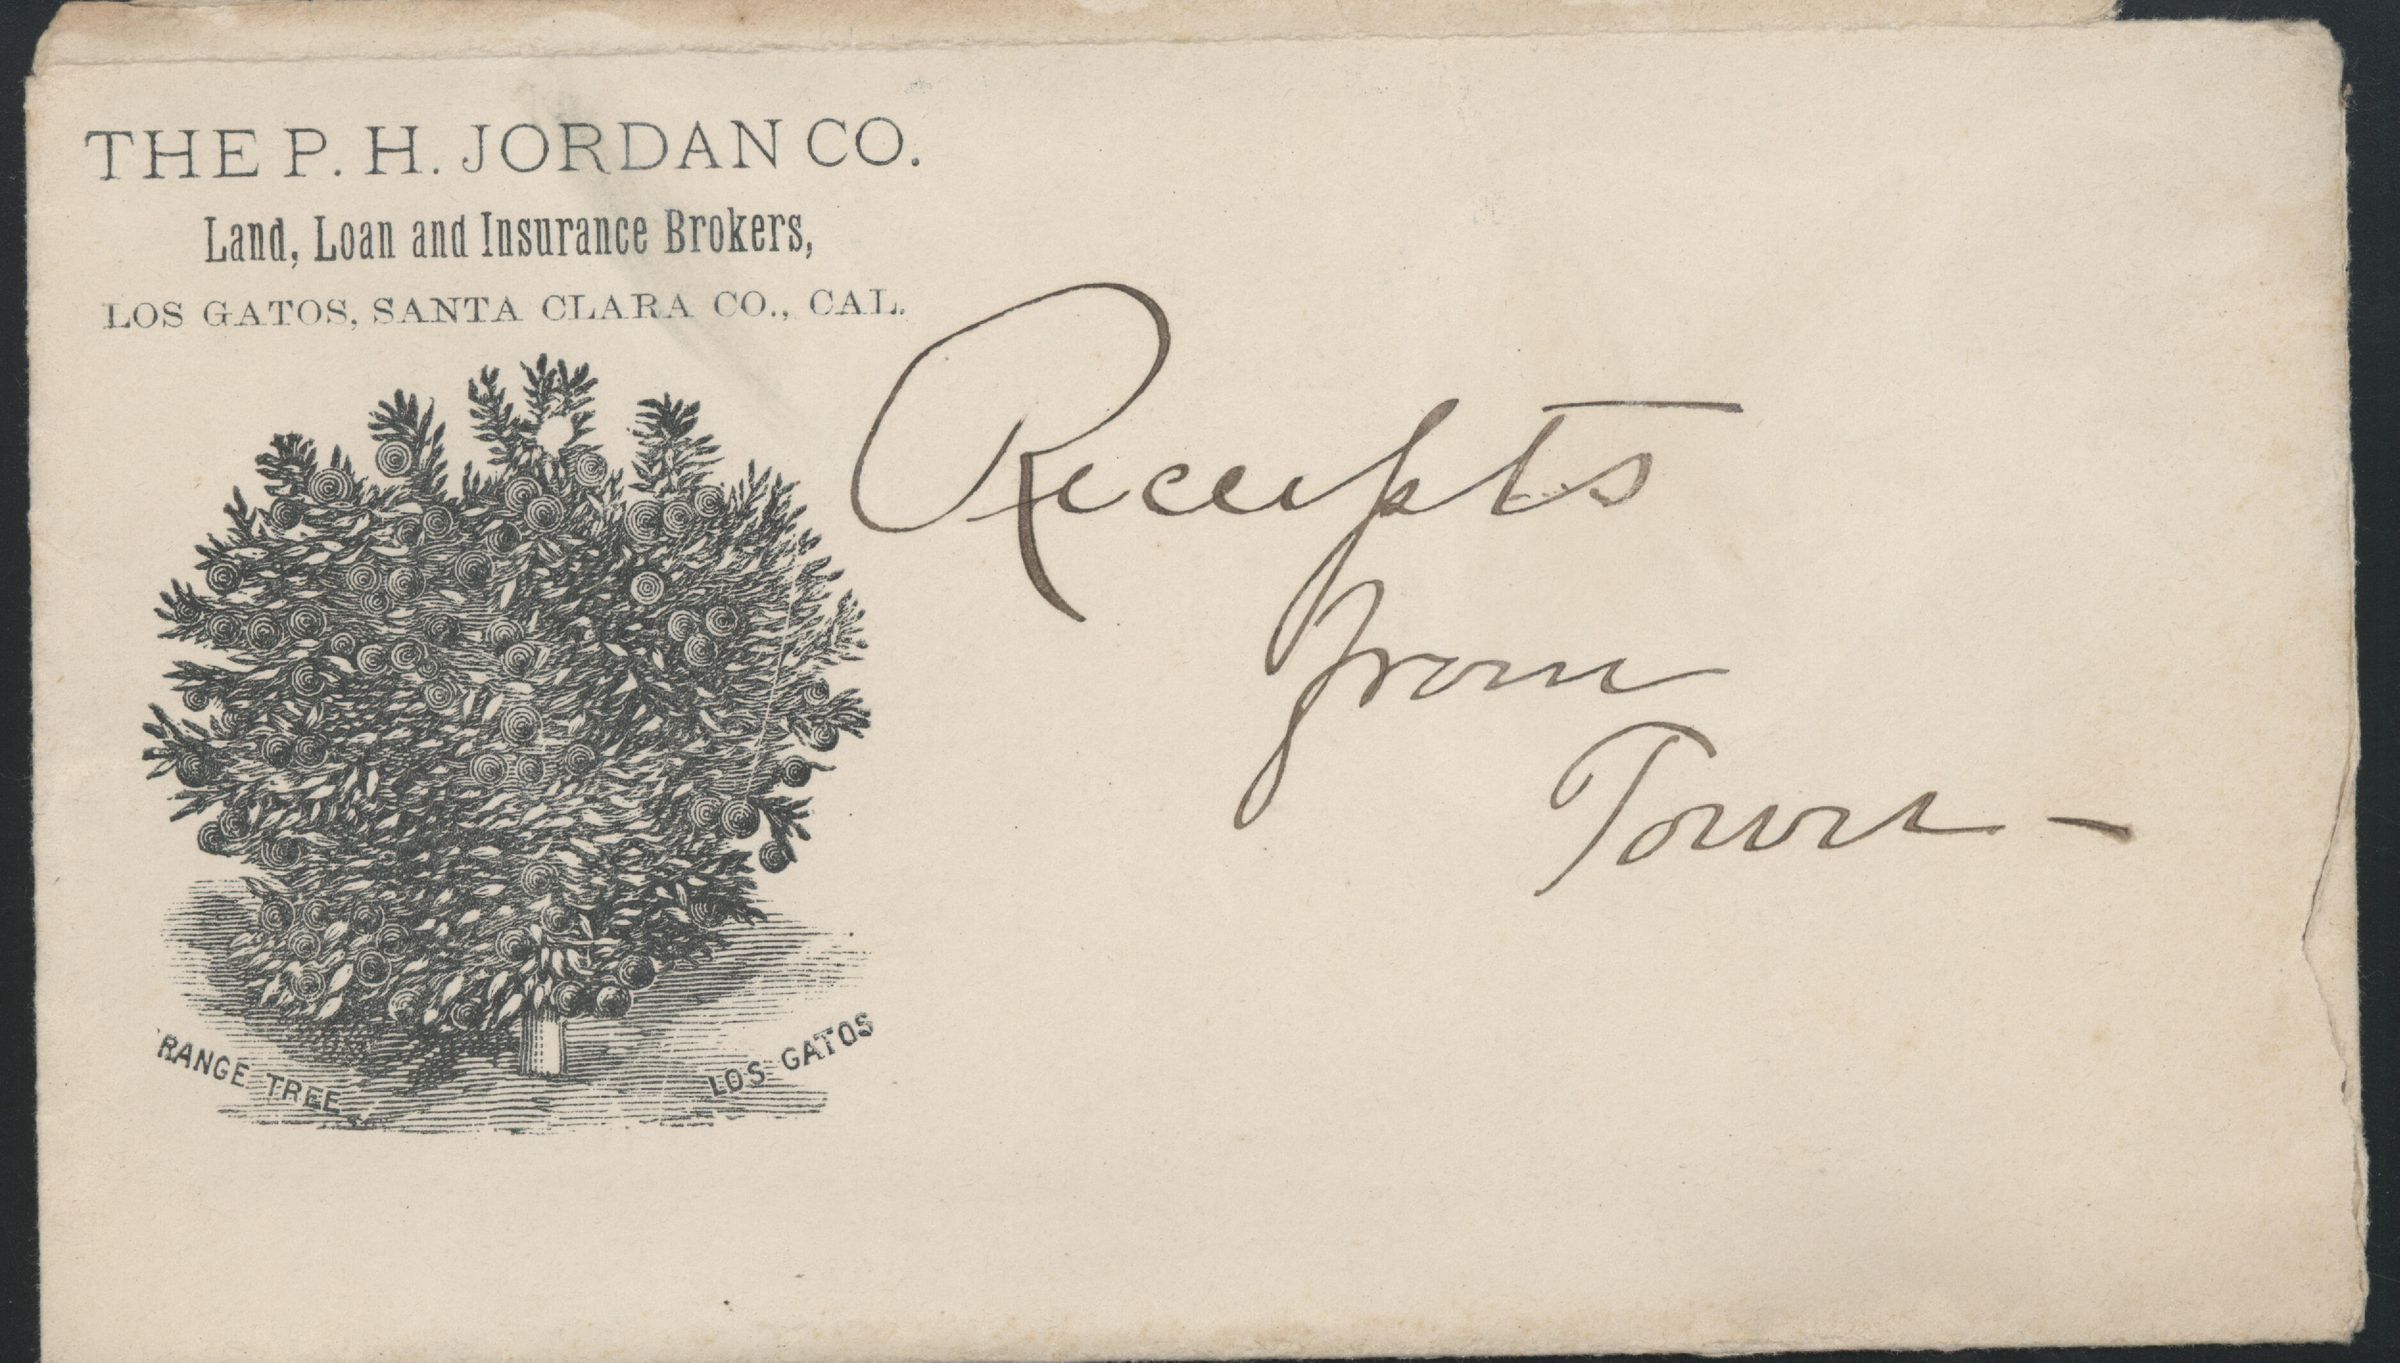 THE P. H. JORDAN CO.
Land, Loan and Insurance Brokers,
LOS GATOS, SANTA CLARA CO., CAL.
Receipts
from
Town –
RANGE TREE
LOS GATOS